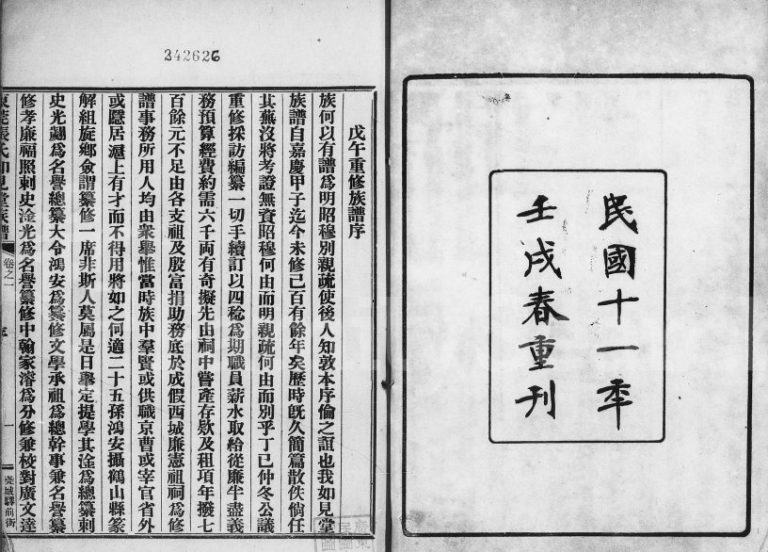 民國十一年
壬戌春重刊
342626
戊午重修族譜序
族何以有譜爲明昭穆別親疏使後人知敦本序倫之誼也我如見堂
族譜自嘉慶甲子迄今未修已百有餘年矣歷時旣久簡篇散佚倘任
其蕪沒將考證無資昭穆何由而明親疏何由而別乎丁巳仲冬公議
重修採訪編纂一切手續訂以四稔爲期職員薪水取給從廉半盡義
務預算經費約需六千両有奇擬先由祠中嘗產存欵及租項年撥七
百餘元不足由各支祖及殷富捐助務底於成假西城廉憲祖祠爲修
譜事務所用人均由衆舉惟當時族中羣賢或供職京曹或宰官省外
或隱居滬上有才而不得用將如之何適二十五孫鴻安攝鶴山縣篆
解組旋鄉僉謂纂修一席非斯人莫屬是日舉定提學其淦爲總纂刺
史光翽爲名譽總纂大令鴻安爲纂修文學承祖爲總幹事兼名譽纂
修孝廉福照刺史淦光爲名譽纂修中翰家濬爲分修兼校對廣文達
東莞張氏如見堂族譜 卷之一 序 一